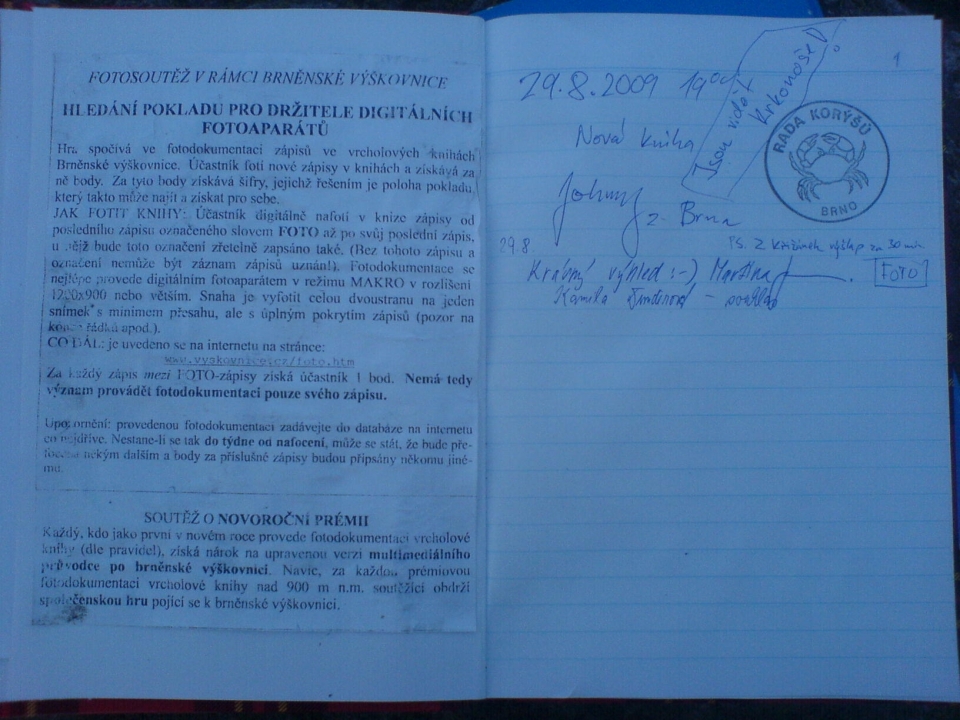 FOTOSOUTĚŽ V RÁMCI BRNĚNSKÉ VÝŠKOVNICE
HLEDÁNÍ POKLADU PRO DRŽITELE DIGITÁLNÍCH
FOTOAPARÁTŮ
Hra spočívá ve fotodokumentaci zápisů ve vrcholových knihách
Brněnské výškovnice. Účastník fotí nové zápisy v knihách a získává za
ně body. Za tyto body získává šifry, jejichž řešením je poloha pokladu,
který takto může najít a získat pro sebe.
JAK FOTIT KNIHY: Účastník digitálně nafotí v knize zápisy od
posledního zápisu označeného slovem FOTO až po svůj poslední zápis,
u nějž bude toto označení zřetelně zapsáno také. (Bez tohoto zápisu a
označení nemůže být záznam zápisů uznán!). Fotodokumentace se
nejlépe provede digitálním fotoaparátem v režimu MAKRO v rozlišení
1200x900 nebo větším. Snaha je vyfotit celou dvoustranu na jeden
snímek s minimem přesahu, ale s úplným pokrytím zápisů (pozor na
konce řádků apod.).
CO DÁL: je uvedeno se na internetu na stránce:
www.vyskovnice.cz/foto.htm
Za každý zápis mezi FOTO-zápisy získá účastník 1 bod. Nemá tedy
význam provádět fotodokumentaci pouze svého zápisu.
Upozornění: provedenou fotodokumentaci zadávejte do databáze na internetu
co nejdříve. Nestane-li se tak do týdne od nafocení, může se stát, že bude pře-
focena někým dalším a body za příslušné zápisy budou připsány někomu jiné-
mu.
SOUTĚŽ O NOVOROČNÍ PRÉMII
Každý, kdo jako první v novém roce provede fotodokumentaci vrcholové
knihy (dle pravidel), získá nárok na upravenou verzi multimediálního
průvodce po brněnské výškovnici. Navíc, za každou prémiovou
fotodokumentaci vrcholové knihy nad 900 m n.m. soutěžící obdrží
společenskou hru pojící se k brněnské výškovnici.
1
29.8.2009 19
Jsou vidět
Krkonoše!
Nová kniha
RADA KORÝŠŮ
BRNO
Johny
z Brna
PS. Z Křižánek výšlap za 30 min
29.8.
Krásný výhled :-) Martina
FOTO
Kamila - souhlas